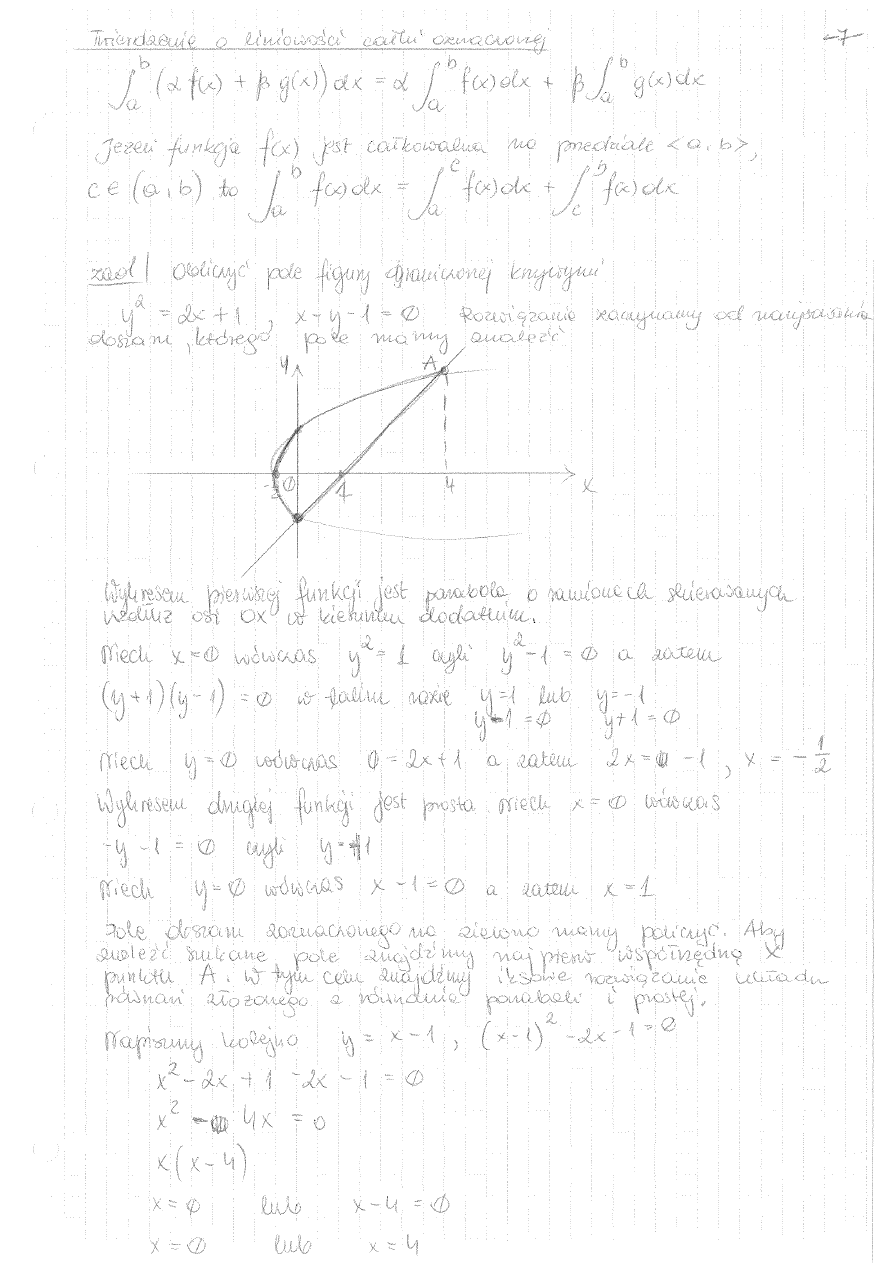 Twierdzenie o liniowości całki oznaczonej -7-
∫_a^b (α f(x) + β g(x)) dx = α ∫_a^b f(x) dx + β ∫_a^b g(x) dx
Jeżeli funkcja f(x) jest całkowalna na przedziale <a, b>,
c ∈ (a, b) to ∫_a^b f(x) dx = ∫_a^c f(x) dx + ∫_c^b f(x) dx
zad 1 Obliczyć pole figury ograniczonej krzywymi
y² = 2x + 1 , x - y - 1 = 0 Rozwiązanie zaczynamy od narysowania
obszaru, którego pole mamy znaleźć
y A
-1/2 0 1 4 x
Wykresem pierwszej funkcji jest parabola o ramionach skierowanych
wzdłuż osi OX w kierunku dodatnim.
Niech x = 0 wówczas y² = 1 czyli y² - 1 = 0 a zatem
(y + 1)(y - 1) = 0 w takim razie y = 1 lub y = -1
y - 1 = 0 y + 1 = 0
Niech y = 0 wówczas 0 = 2x + 1 a zatem 2x = -1 , x = -1/2
Wykresem drugiej funkcji jest prosta Niech x = 0 wówczas
-y - 1 = 0 czyli y = -1
Niech y = 0 wówczas x - 1 = 0 a zatem x = 1
Pole obszaru zaznaczonego na zielono mamy policzyć. Aby
znaleźć szukane pole znajdźmy najpierw współrzędną x
punktu A. W tym celu znajdźmy iksowe rozwiązanie układu
równań złożonego z równania paraboli i prostej.
Napiszmy kolejno y = x - 1 , (x - 1)² - 2x - 1 = 0
x² - 2x + 1 - 2x - 1 = 0
x² - 4x = 0
x(x - 4)
x = 0 lub x - 4 = 0
x = 0 lub x = 4